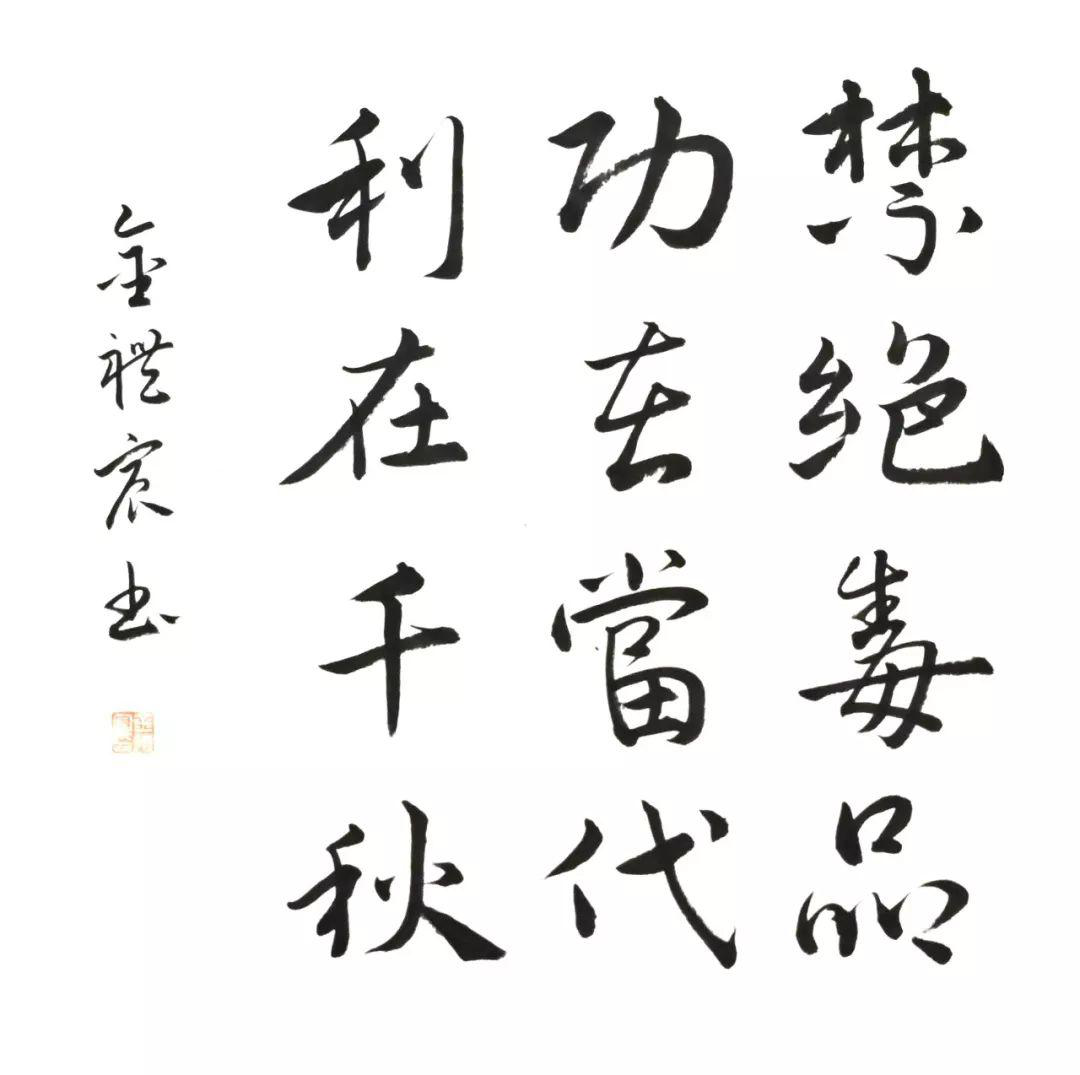 禁绝毒品
功在當代
利在千秋
金禮宸书